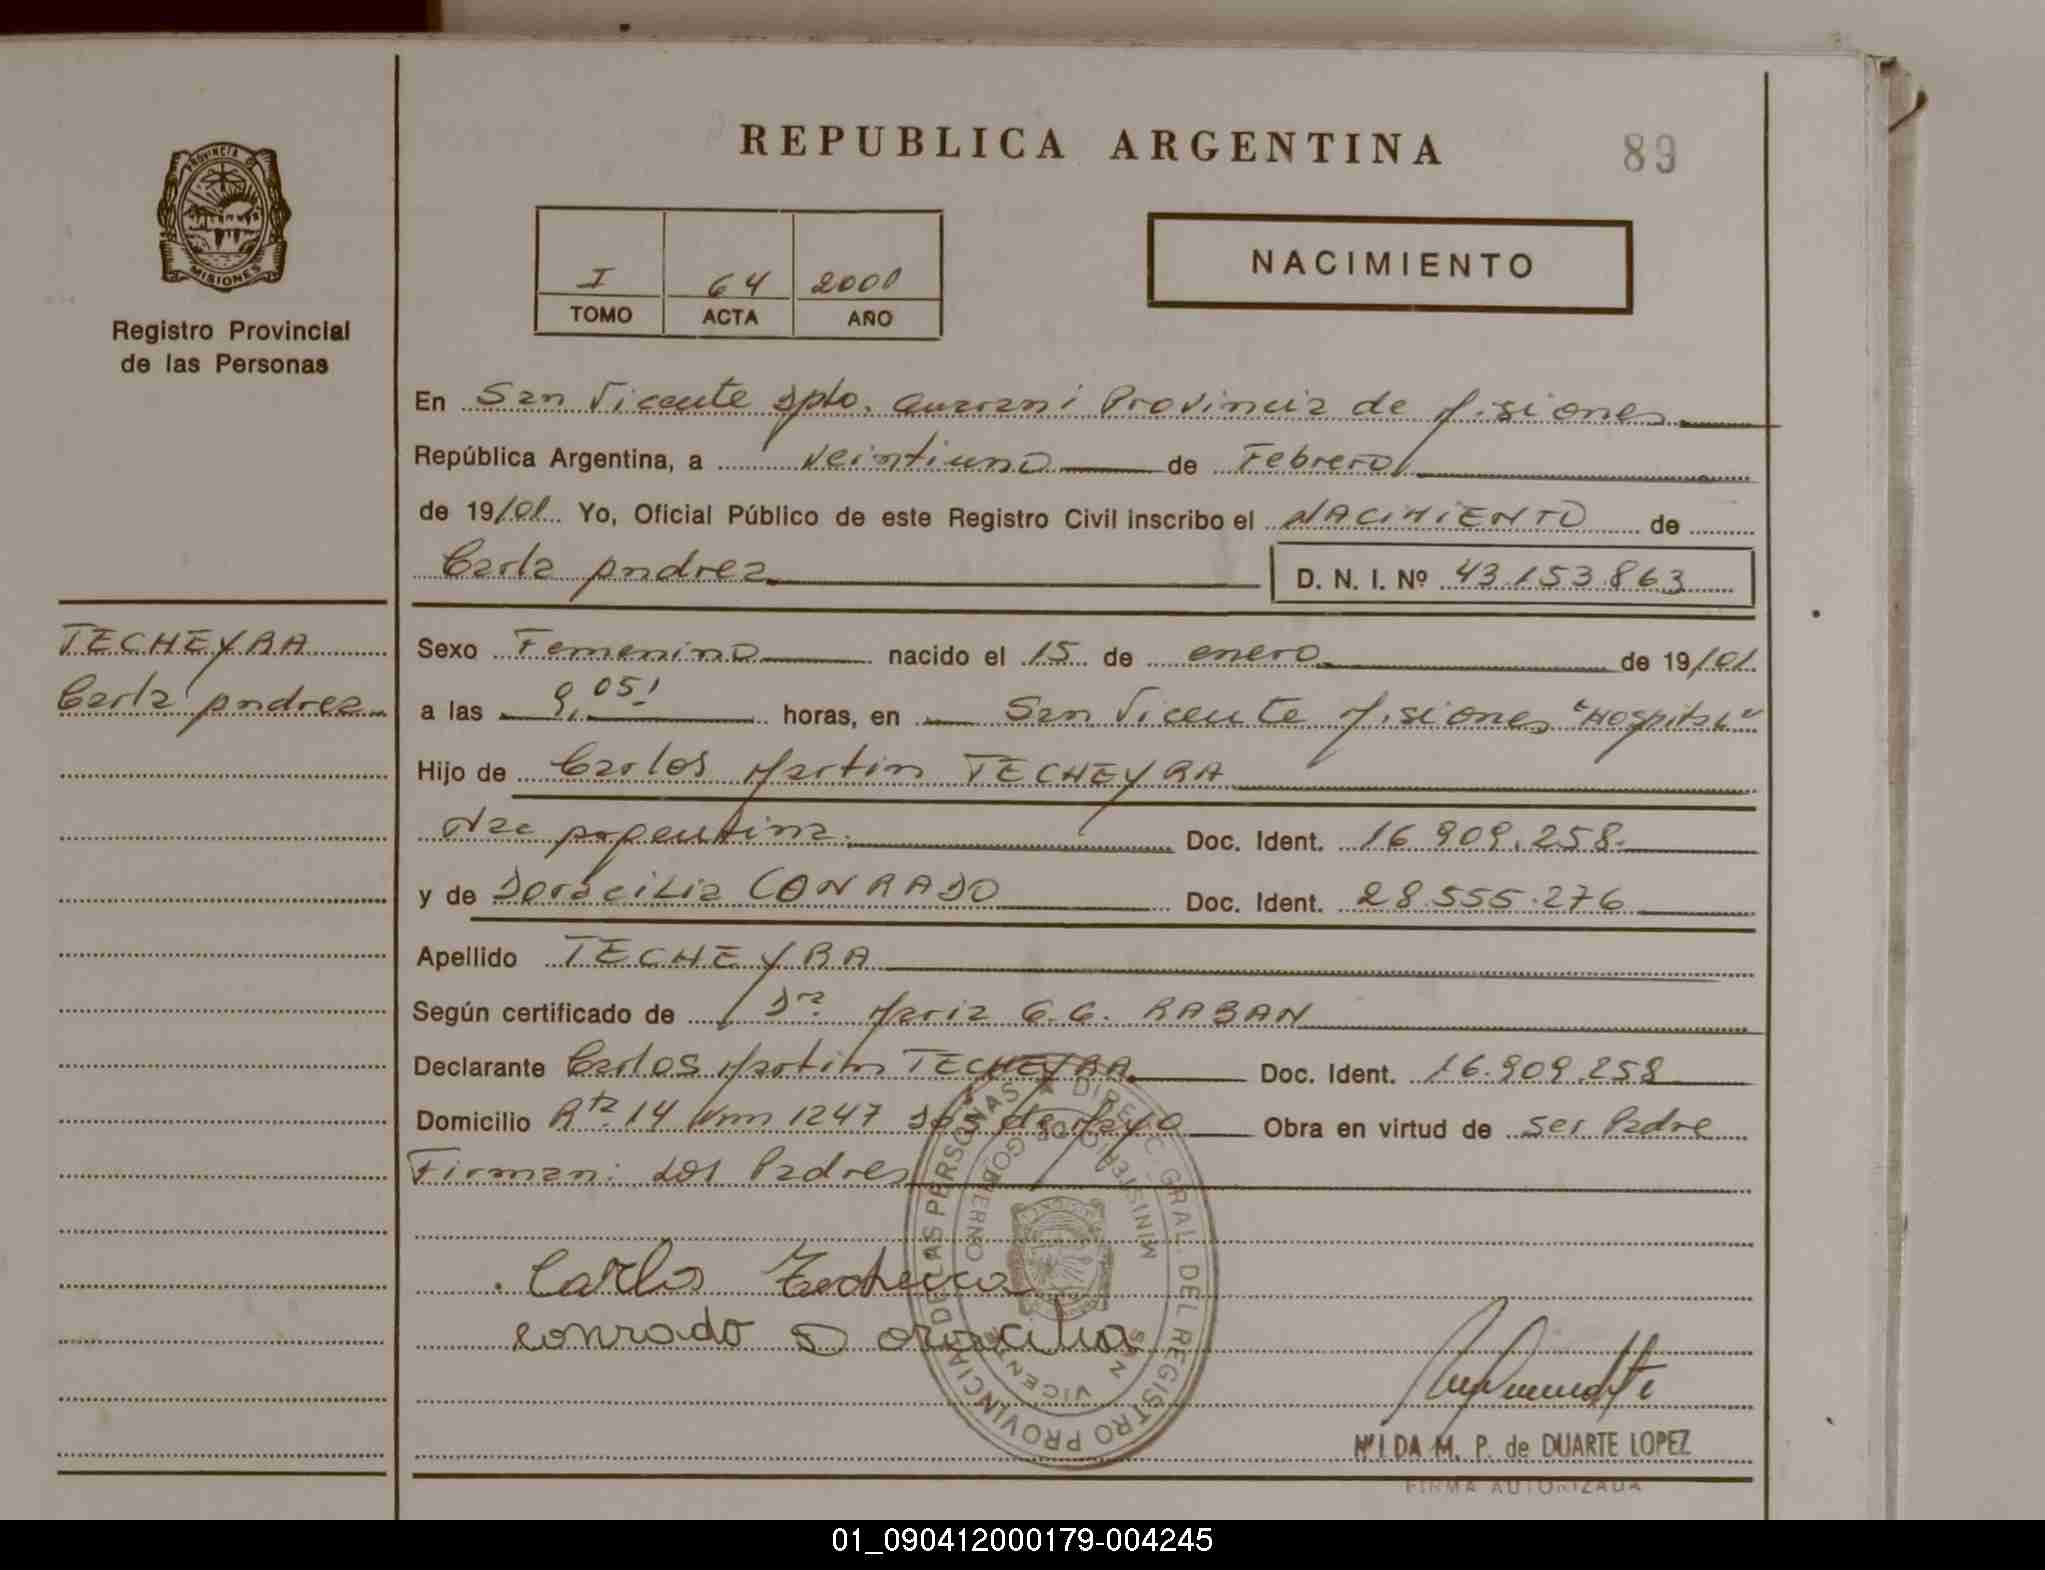 REPUBLICA ARGENTINA
89
PROVINCIA DE
MISIONES
Registro Provincial
de las Personas
I 64 2001
TOMO ACTA AÑO
NACIMIENTO
En San Vicente Dpto. Guarani Provincia de Misiones
República Argentina, a veintiuno de Febrero
de 19/01 Yo, Oficial Público de este Registro Civil inscribo el NACIMIENTO de
Carla Andrea D. N. I. Nº 43.153.863
TECHEYRA
Carla Andrea
Sexo Femenino nacido el 15 de enero de 19/01
a las 9,05' horas, en San Vicente Misiones "Hospital"
Hijo de Carlos Martin TECHEYRA
Nac Argentina. Doc. Ident. 16.909.258.
y de Doracilia CONRADO Doc. Ident. 28.555.276
Apellido TECHEYRA
Según certificado de Dra Maria G.G. RABAN
Declarante Carlos Martin TECHEYRA Doc. Ident. 16.909.258
Domicilio Rta 14 Km 1247 Dos de Mayo Obra en virtud de ser Padre
Firman: Los Padres
DIREC. GRAL. DEL REGISTRO PROVINCIAL DE LAS PERSONAS
MINISTERIO DE GOBIERNO
SAN VICENTE
Carlos Techeyra
conrado Doracilia
NILDA M. P. de DUARTE LOPEZ
FIRMA AUTORIZADA
01_090412000179-004245